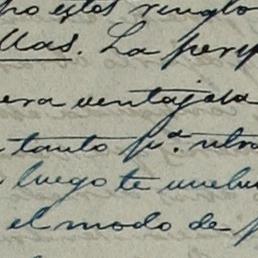 estos renglo
llas. La persp
era ventajosa
tanto pª. ultra
luego te vuelv
el modo de p